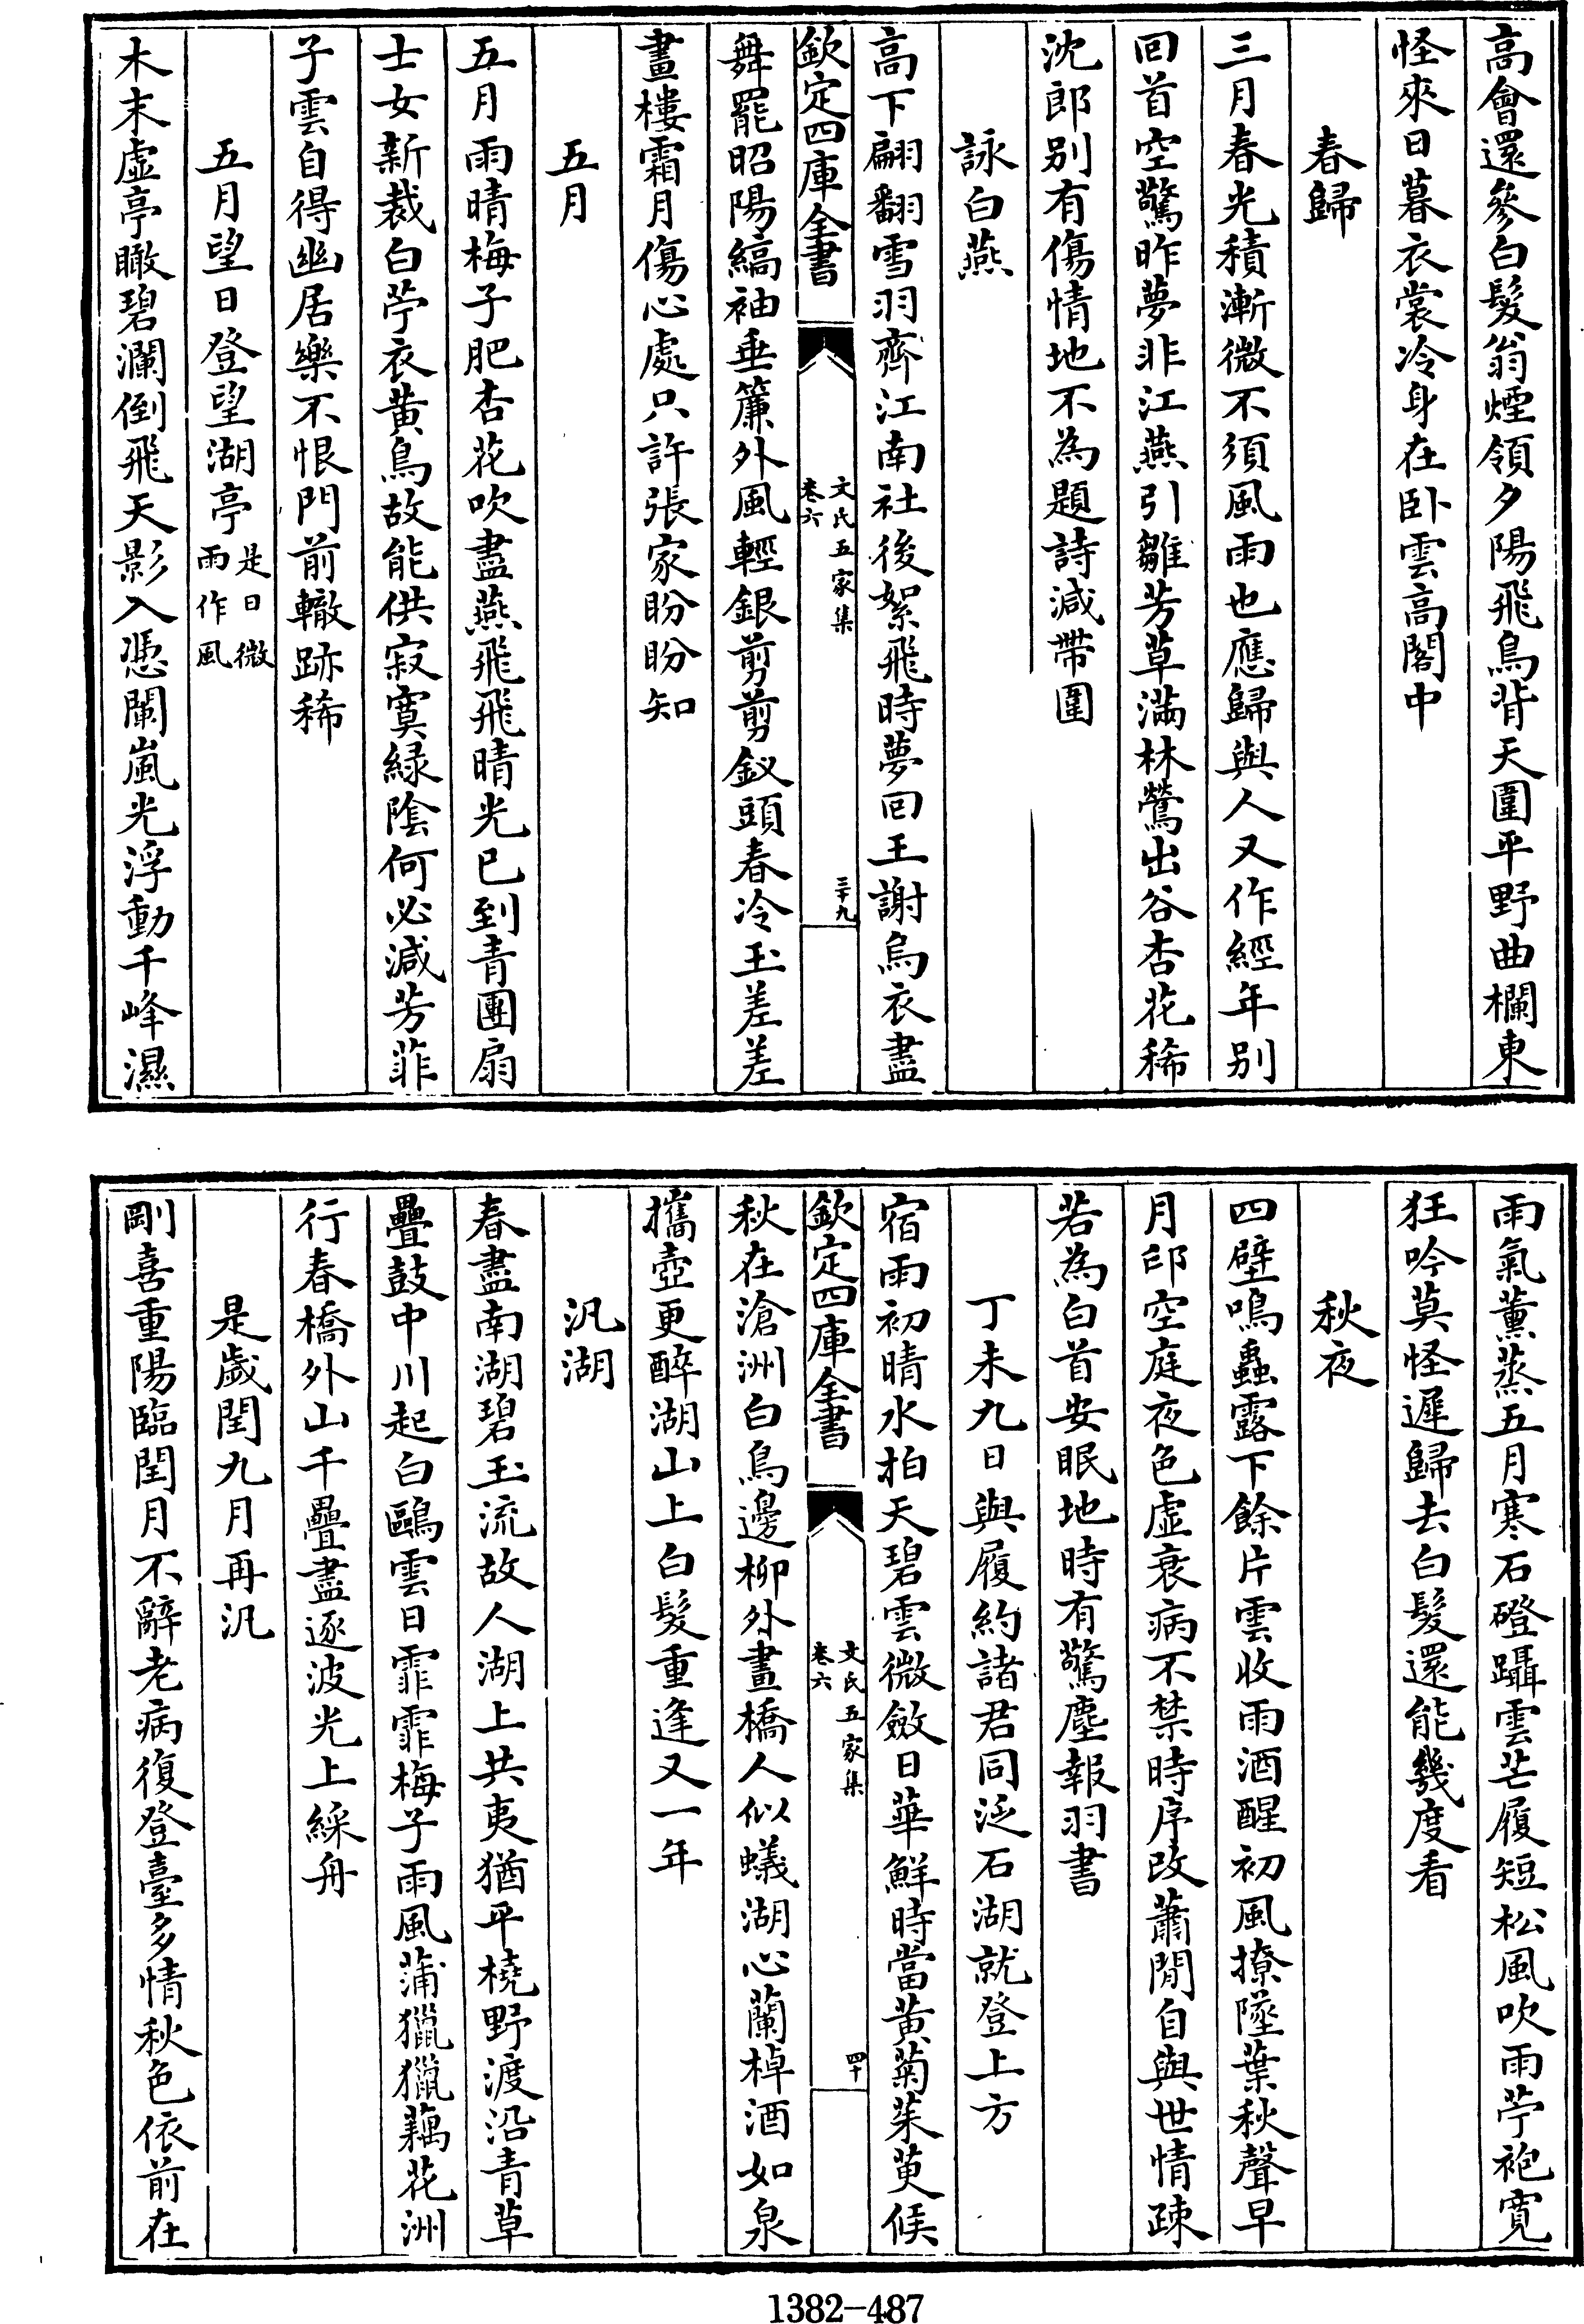 高會還參白髮翁煙領夕陽飛鳥背天圍平野曲欄東
怪來日暮衣裳冷身在卧雲高閣中
春歸
三月春光積漸微不須風雨也應歸與人又作經年别
回首空驚昨夢非江燕引雛芳草滿林鶯出谷杏花稀
沈郎别有傷情地不為題詩減帶圍
詠白燕
高下翩翻雪羽齊江南社後絮飛時夢回王謝烏衣盡
欽定四庫全書
文氏五家集
卷六
三十九
舞罷昭陽縞袖垂簾外風輕銀剪剪釵頭春冷玉差差
畫樓霜月傷心處只許張家盼盼知
五月
五月雨晴梅子肥杏花吹盡燕飛飛晴光已到青團扇
士女新裁白苧衣黄鳥故能供寂寞緑陰何必減芳菲
子雲自得幽居樂不恨門前轍跡稀
五月望日登望湖亭是日微
雨作風
木末虚亭瞰碧瀾倒飛天影入憑闌嵐光浮動千峰濕
雨氣薰蒸五月寒石磴躡雲芒履短松風吹雨苧袍寛
狂吟莫怪遲歸去白髮還能幾度看
秋夜
四壁鳴蟲露下餘片雲收雨酒醒初風撩墜葉秋聲早
月印空庭夜色虚衰病不禁時序改蕭閒自與世情疎
若為白首安眠地時有驚塵報羽書
丁未九日與履約諸君同泛石湖就登上方
宿雨初晴水拍天碧雲微斂日華鮮時當黄菊茱萸候
欽定四庫全書
文氏五家集
卷六
四十
秋在滄洲白鳥邊柳外畫橋人似蟻湖心蘭棹酒如泉
攜壺更醉湖山上白髮重逢又一年
汎湖
春盡南湖碧玉流故人湖上共夷猶平橈野渡沿青草
疊鼓中川起白鷗雲日霏霏梅子雨風蒲獵獵藕花洲
行春橋外山千疊盡逐波光上綵舟
是歲閏九月再汎
剛喜重陽臨閏月不辭老病復登臺多情秋色依前在
1382-487